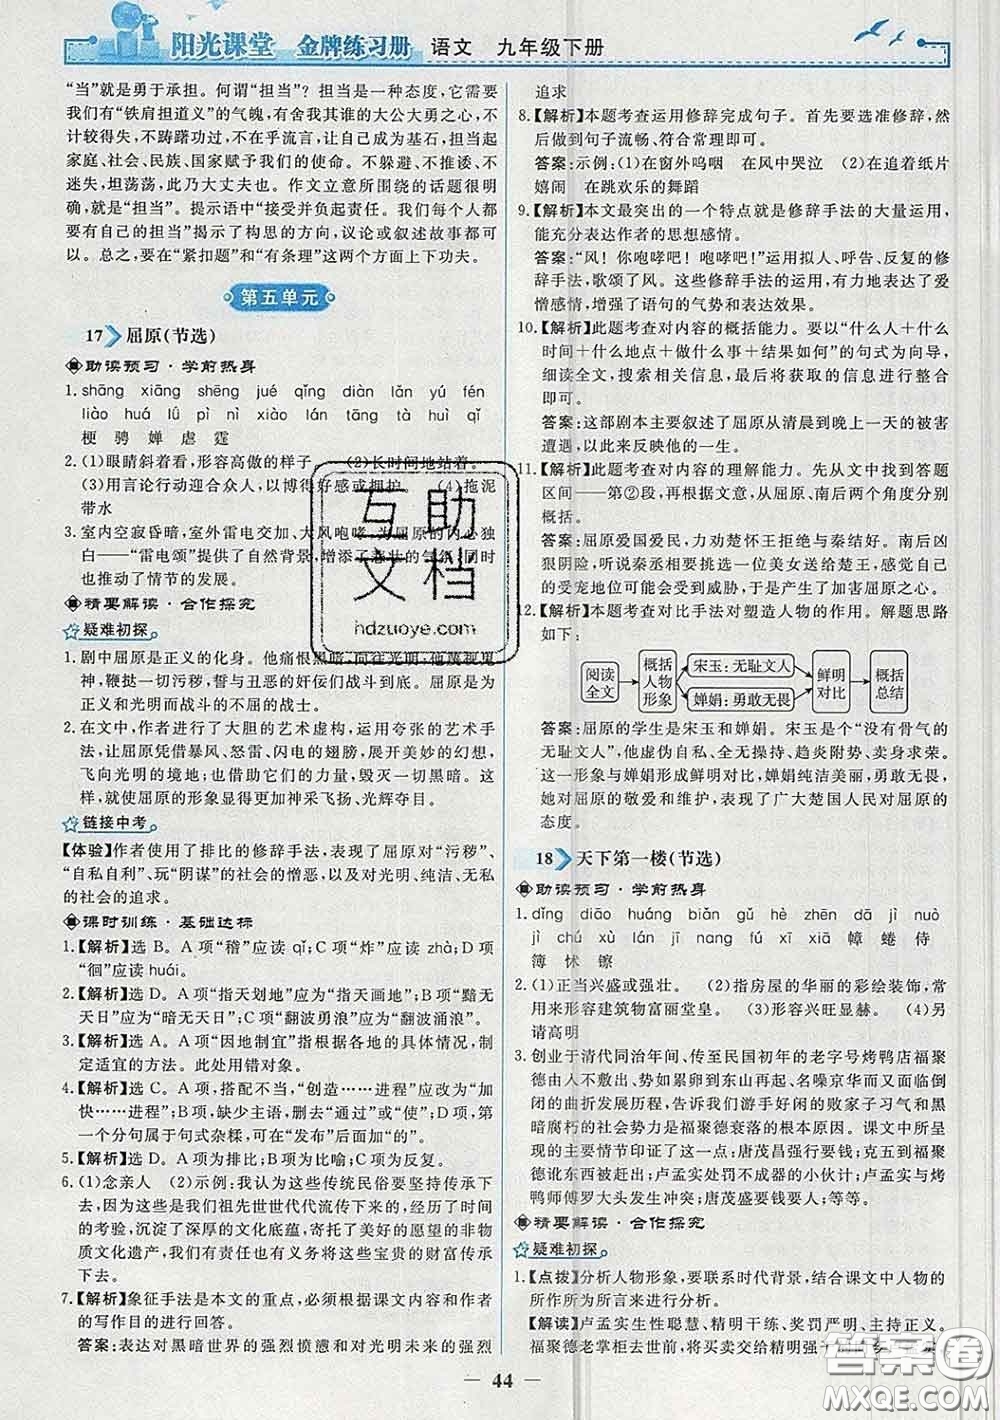 阳光课堂 金牌练习册 语文 九年级下册
“当”就是勇于承担。何谓“担当”？担当是一种态度，
我们有“铁肩担道义”的气魄，有舍我其谁的大公大勇之心，不
计较得失，不踌躇功过，不在乎流言，让自己成为基石，担当起
家庭、社会、民族、国家赋予我们的使命。不躲避、不推诿、不
迷失，坦荡荡，此乃大丈夫也。作文立意所围绕的话题很明
确，就是“担当”。提示语中“接受并负起责任。我们每个人都
要有自己的担当”揭示了构思的方向，议论或叙述故事都可以
用。总之，要在“紧扣题”和“有条理”这两个方面上下功夫。
第五单元
17 屈原(节选)
助读预习·学前热身
1. shāng xiāng shēng jué qǐng diàn lǎn yú fèi
liào huá lǜ pì nì xiào lán tāng tà huì qǐ
梗 骋 婵 虐 霆
2. (1)眼睛斜着看，形容高傲的样子 (2)长时间地站着。
(3)用言论行动迎合众人，以博得好感或拥护。 (4)拖泥
带水
3. 室内空寂昏暗，室外雷电交加、大风咆哮，为屈原的内心独
白——“雷电颂”提供了自然背景，增添了悲壮的气氛，同时
也推动了情节的发展。
精要解读·合作探究
疑难初探
1. 剧中屈原是正义的化身。他痛恨黑暗，向往光明，他蔑视鬼
神，鞭挞一切污秽，誓与宫廷的奸佞们战斗到底。屈原是为了
正义和光明而战斗的不屈的战士。
2. 在文中，作者进行了大胆的艺术虚构，运用夸张的艺术手
法，让屈原凭借着暴风、怒雷、闪电的翅膀，展开美妙的幻想，
飞向光明的境地；也借助它们的力量，毁灭一切黑暗。这
样，就使屈原的形象显得更加神采飞扬、光辉夺目。
链接中考
【体验】作者使用了排比的修辞手法，表现了屈原对“污秽”、
“自私自利”、玩“阴谋”的社会的憎恶，以及对光明、纯洁、无私
的社会的追求。
课时训练·基础达标
1.【解析】选 B。A 项“稽”应读 qǐ；C 项“炸”应读 zhà；D 项
“徊”应读 huái。
2.【解析】选 D。A 项“指天划地”应为“指天画地”；B 项“黯无
天日”应为“暗无天日”；C 项“翻波勇浪”应为“翻波涌浪”。
3.【解析】选 D。A 项“因地制宜”指根据各地的具体情况，制
定适宜的方法。此处用错对象。
4.【解析】选 C。A 项，搭配不当，“创造……进程”应改为“加
快……进程”；B 项，缺少主语，删去“通过”或“使”；D 项，第
一个分句属于句式杂糅，可在“发布”后面加“由”。
5.【解析】选 D。A 项为排比；B 项为比喻；C 项为反复。
6. (1)念亲人 (2)示例：我认为这些传统民俗要传承下去。
这些民俗是我们祖先世世代代流传下来的，经历了时间
的考验，沉淀了深厚的文化底蕴，寄托了美好的愿望的非物
质文化遗产，我们有责任也有义务将这些宝贵的财富传承
下去。
7.【解析】象征手法是本文的重点，必须根据课文内容和作者
的写作目的进行回答。
答案：表达对黑暗世界的强烈愤懑和对光明未来的强烈
追求
8.【解析】本题考查运用修辞完成句子。首先要选准修辞，然
后做到句子流畅、符合常理即可。
答案：示例：(1)在窗外呜咽 在风中哭泣 (2)在追着纸片
嬉闹 在跳欢乐的舞蹈
9.【解析】本文最突出的一个特点就是修辞手法的大量运用，
能充分表达作者的思想感情。
答案：“风！你咆哮吧！咆哮吧！”运用拟人、呼告、反复的修
辞手法，歌颂了风。这些修辞手法的运用，有力地表达了爱
憎感情，增强了语句的气势和表达效果。
10.【解析】此题考查对内容的概括能力。要以“什么人＋什么
时间＋什么地点＋做什么事＋结果如何”的句式为向导，
细读全文，搜索相关信息，最后将获取的信息进行整合
即可。
答案：这部剧本主要叙述了屈原从清晨到晚上一天的被害
遭遇，以此来反映他的一生。
11.【解析】此题考查对内容的理解能力。先从文中找到答题
区间——第②段，再根据文意，从屈原、南后两个角度分别
概括。
答案：屈原爱国爱民，力劝楚怀王拒绝与秦结好。南后凶
狠阴险，听说秦丞相要挑选一位美女送给楚王，感觉自己
的受宠地位可能受到威胁，于是产生加害屈原之心。
12.【解析】本题考查对比手法对塑造人物的作用。解题思路
如下：
阅读全文 概括人物形象 宋玉：无耻文人 婵娟：勇敢无畏 鲜明对比 概括总结
答案：屈原的学生是宋玉和婵娟。宋玉是个“没有骨气的
无耻文人”，他虚伪自私、全无操持、趋炎附势、卖身求荣。
这一形象与婵娟形成鲜明对比，婵娟纯洁美丽，勇敢无畏，
对屈原的敬爱和维护，表现了广大楚国人民对屈原的
态度。
18 天下第一楼(节选)
助读预习·学前热身
1. dǐng diāo huáng biǎn gǔ hè zhēn dā jì nuò
jì chú xù lán jī nang fú xī xiā 幛 蜷 侍
簿 怵 镲
2. (1)正当兴盛或强壮。 (2)指房屋的华丽的彩绘装饰，常
用来形容建筑物富丽堂皇。 (3)形容兴旺显赫。 (4)另
请高明
3. 创业于清代同治年间、传至民国初年的老字号烤鸭店福聚
德由人不敷出、势如累卵到东山再起、名噪京华而又面临
困顿的发展历程，告诉我们游手好闲的败家子习气和黑
暗腐朽的社会势力是福聚德衰落的根本原因。课文中所呈
现的主要情节印证了这一点：唐茂昌强行要钱；克五到福聚
德讹东西被赶出；卢孟实处罚不成器的小伙计；卢孟实与烤
鸭师傅罗大头发生冲突；唐茂盛要钱要人；等等。
精要解读·合作探究
疑难初探
1.【点拨】分析人物形象，要联系时代背景，结合课文中人物的
所作所为所言来分析。
【解读】卢孟实生性聪慧、精明干练、奖罚严明、主持正义。
福聚德老掌柜去世前，将买卖交给精明强干的
44
互助文档
hdzuoye.com
答案圈
MXQE.COM